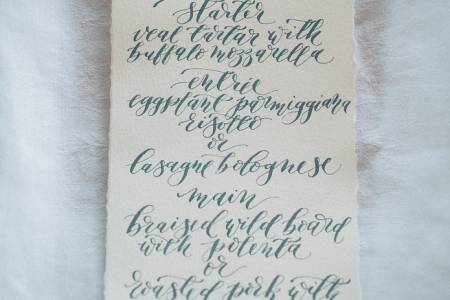 starter
veal tartar with
buffalo mozzarella
entrée
eggplant parmiggiana
risotto
or
lasagne bolognese
main
braised wild board
with polenta
or
roasted pork with